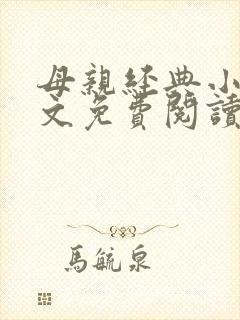 母親經典小
文免費閱讀
馬毓泉